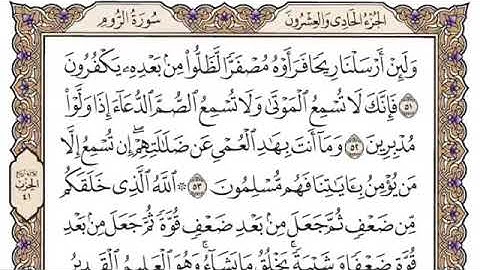 الجُزءُ الحَادِي وَالعِشرُونَ
سُورَةُ الرُّومِ
وَلَئِنْ أَرْسَلْنَا رِيحًا فَرَأَوْهُ مُصْفَرًّا لَّظَلُّوا۟ مِنۢ بَعْدِهِۦ يَكْفُرُونَ
٥١ فَإِنَّكَ لَا تُسْمِعُ ٱلْمَوْتَىٰ وَلَا تُسْمِعُ ٱلصُّمَّ ٱلدُّعَآءَ إِذَا وَلَّوْا۟
مُدْبِرِينَ ٥٢ وَمَآ أَنتَ بِهَٰدِ ٱلْعُمْىِ عَن ضَلَٰلَتِهِمْ ۖ إِن تُسْمِعُ إِلَّا
مَن يُؤْمِنُ بِـَٔايَٰتِنَا فَهُم مُّسْلِمُونَ ٥٣ ۞ ٱللَّهُ ٱلَّذِى خَلَقَكُم
مِّن ضَعْفٍ ثُمَّ جَعَلَ مِنۢ بَعْدِ ضَعْفٍ قُوَّةً ثُمَّ جَعَلَ مِنۢ بَعْدِ
قُوَّةٍ ضَعْفًا وَشَيْبَةً ۚ يَخْلُقُ مَا يَشَآءُ ۖ وَهُوَ ٱلْعَلِيمُ ٱلْقَدِيرُ
الحِزْب
٤١